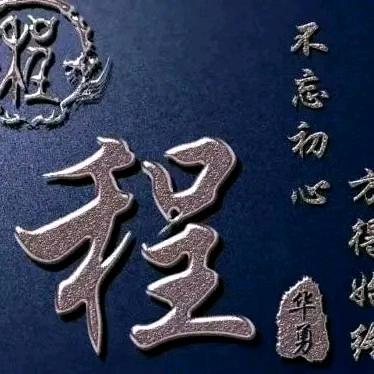 程
程
不忘初心
方得始终
华勇